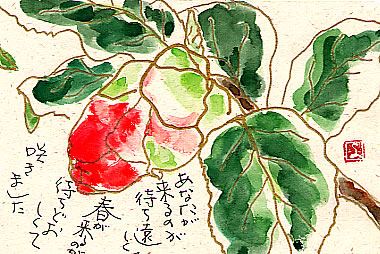 あなたが
来るのが
待ち遠し
いと
春が
来るのが
待ちどお
しくて
咲きました